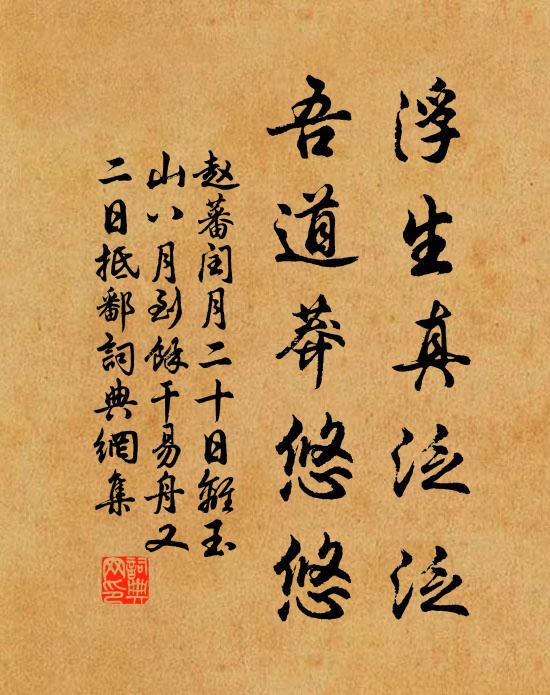 浮生真泛泛
吾道莽悠悠
赵蕃闰月二十日离玉
山八月到馀干易舟又
二日抵鄱词典网集
词典网印